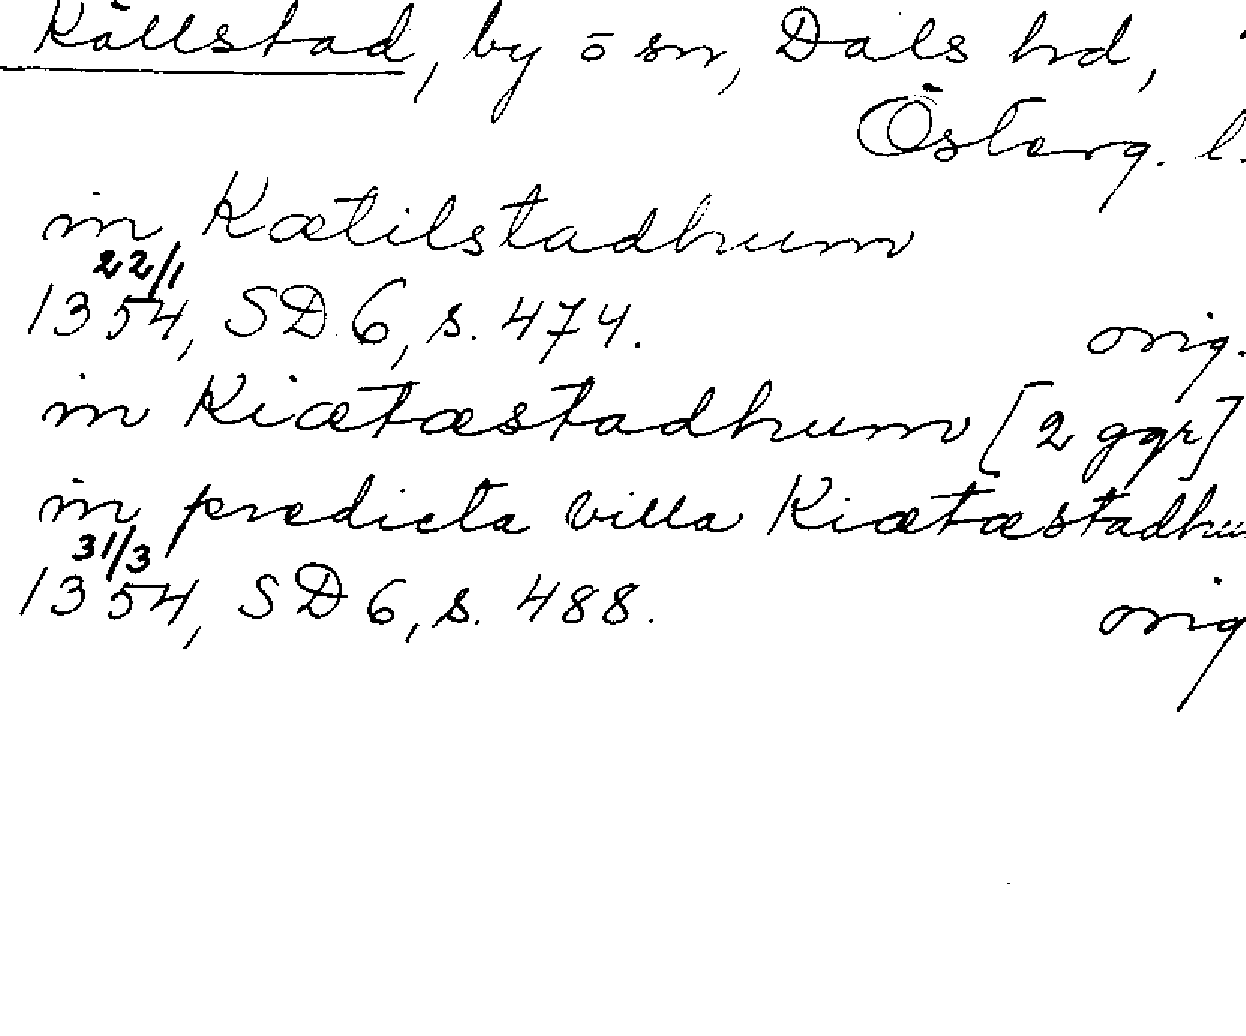 Källstad, by o sn, Dals hd,
Österg. l.
in Kætilstadhum
22/1
1354, SD 6, s. 474. orig.
in Kiætæstadhum [2 ggr]
in predicta villa Kiætæstadhu
31/3
1354, SD 6, s. 488. orig